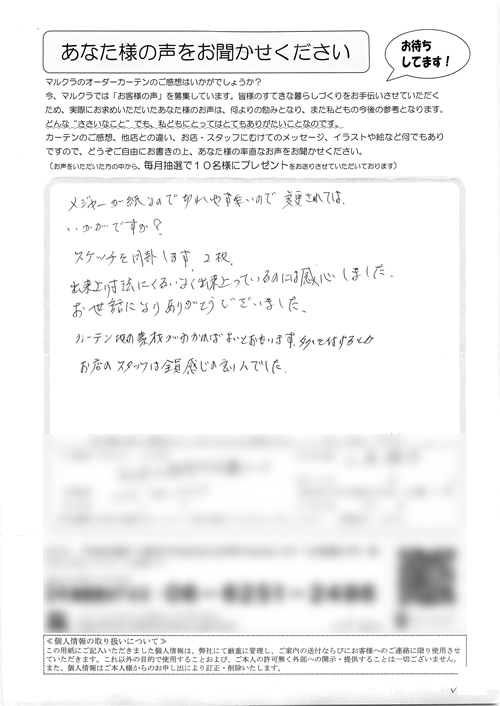 あなた様の声をお聞かせください
お待ち
してます！
マルクラのオーダーカーテンのご感想はいかがでしょうか？
今、マルクラでは「お客様の声」を募集しています。皆様のすてきな暮らしづくりをお手伝いさせていただく
ため、実際にお求めいただいたあなた様のお声は、何よりの励みとなり、また私どもの今後の参考となります。
どんな“ささいなこと”でも、私どもにとってはとてもありがたいことなのです。
カーテンのご感想、他店との違い、お店・スタッフにむけてのメッセージ、イラストや絵など何でもあり
ますので、どうぞご自由にお書きの上、あなた様の率直なお声をお聞かせください。
（お声をいただいた方の中から、毎月抽選で１０名様にプレゼントをお送りさせていただいております）
メジャーが紙なので切れやすいので変更されては
いかがですか？
スケッチを同封します。2枚
出来上り寸法にくるいなく出来上っているのには感心しました。
お世話になりありがとうございました。
カーテン地の素材がわかればよいとおもいます。
お店のスタッフは全員感じの良い人でした。
06-6251-2486
≪個人情報の取り扱いについて≫
この用紙にご記入いただきました個人情報は、弊社にて厳重に管理し、ご案内の送付ならびにお客様へのご連絡に限り使用させ
ていただきます。これ以外の目的で使用することおよび、ご本人の許可無く外部への開示・提供することは一切ございません。
また、個人情報はご本人様からのお申し出により訂正・削除いたします。